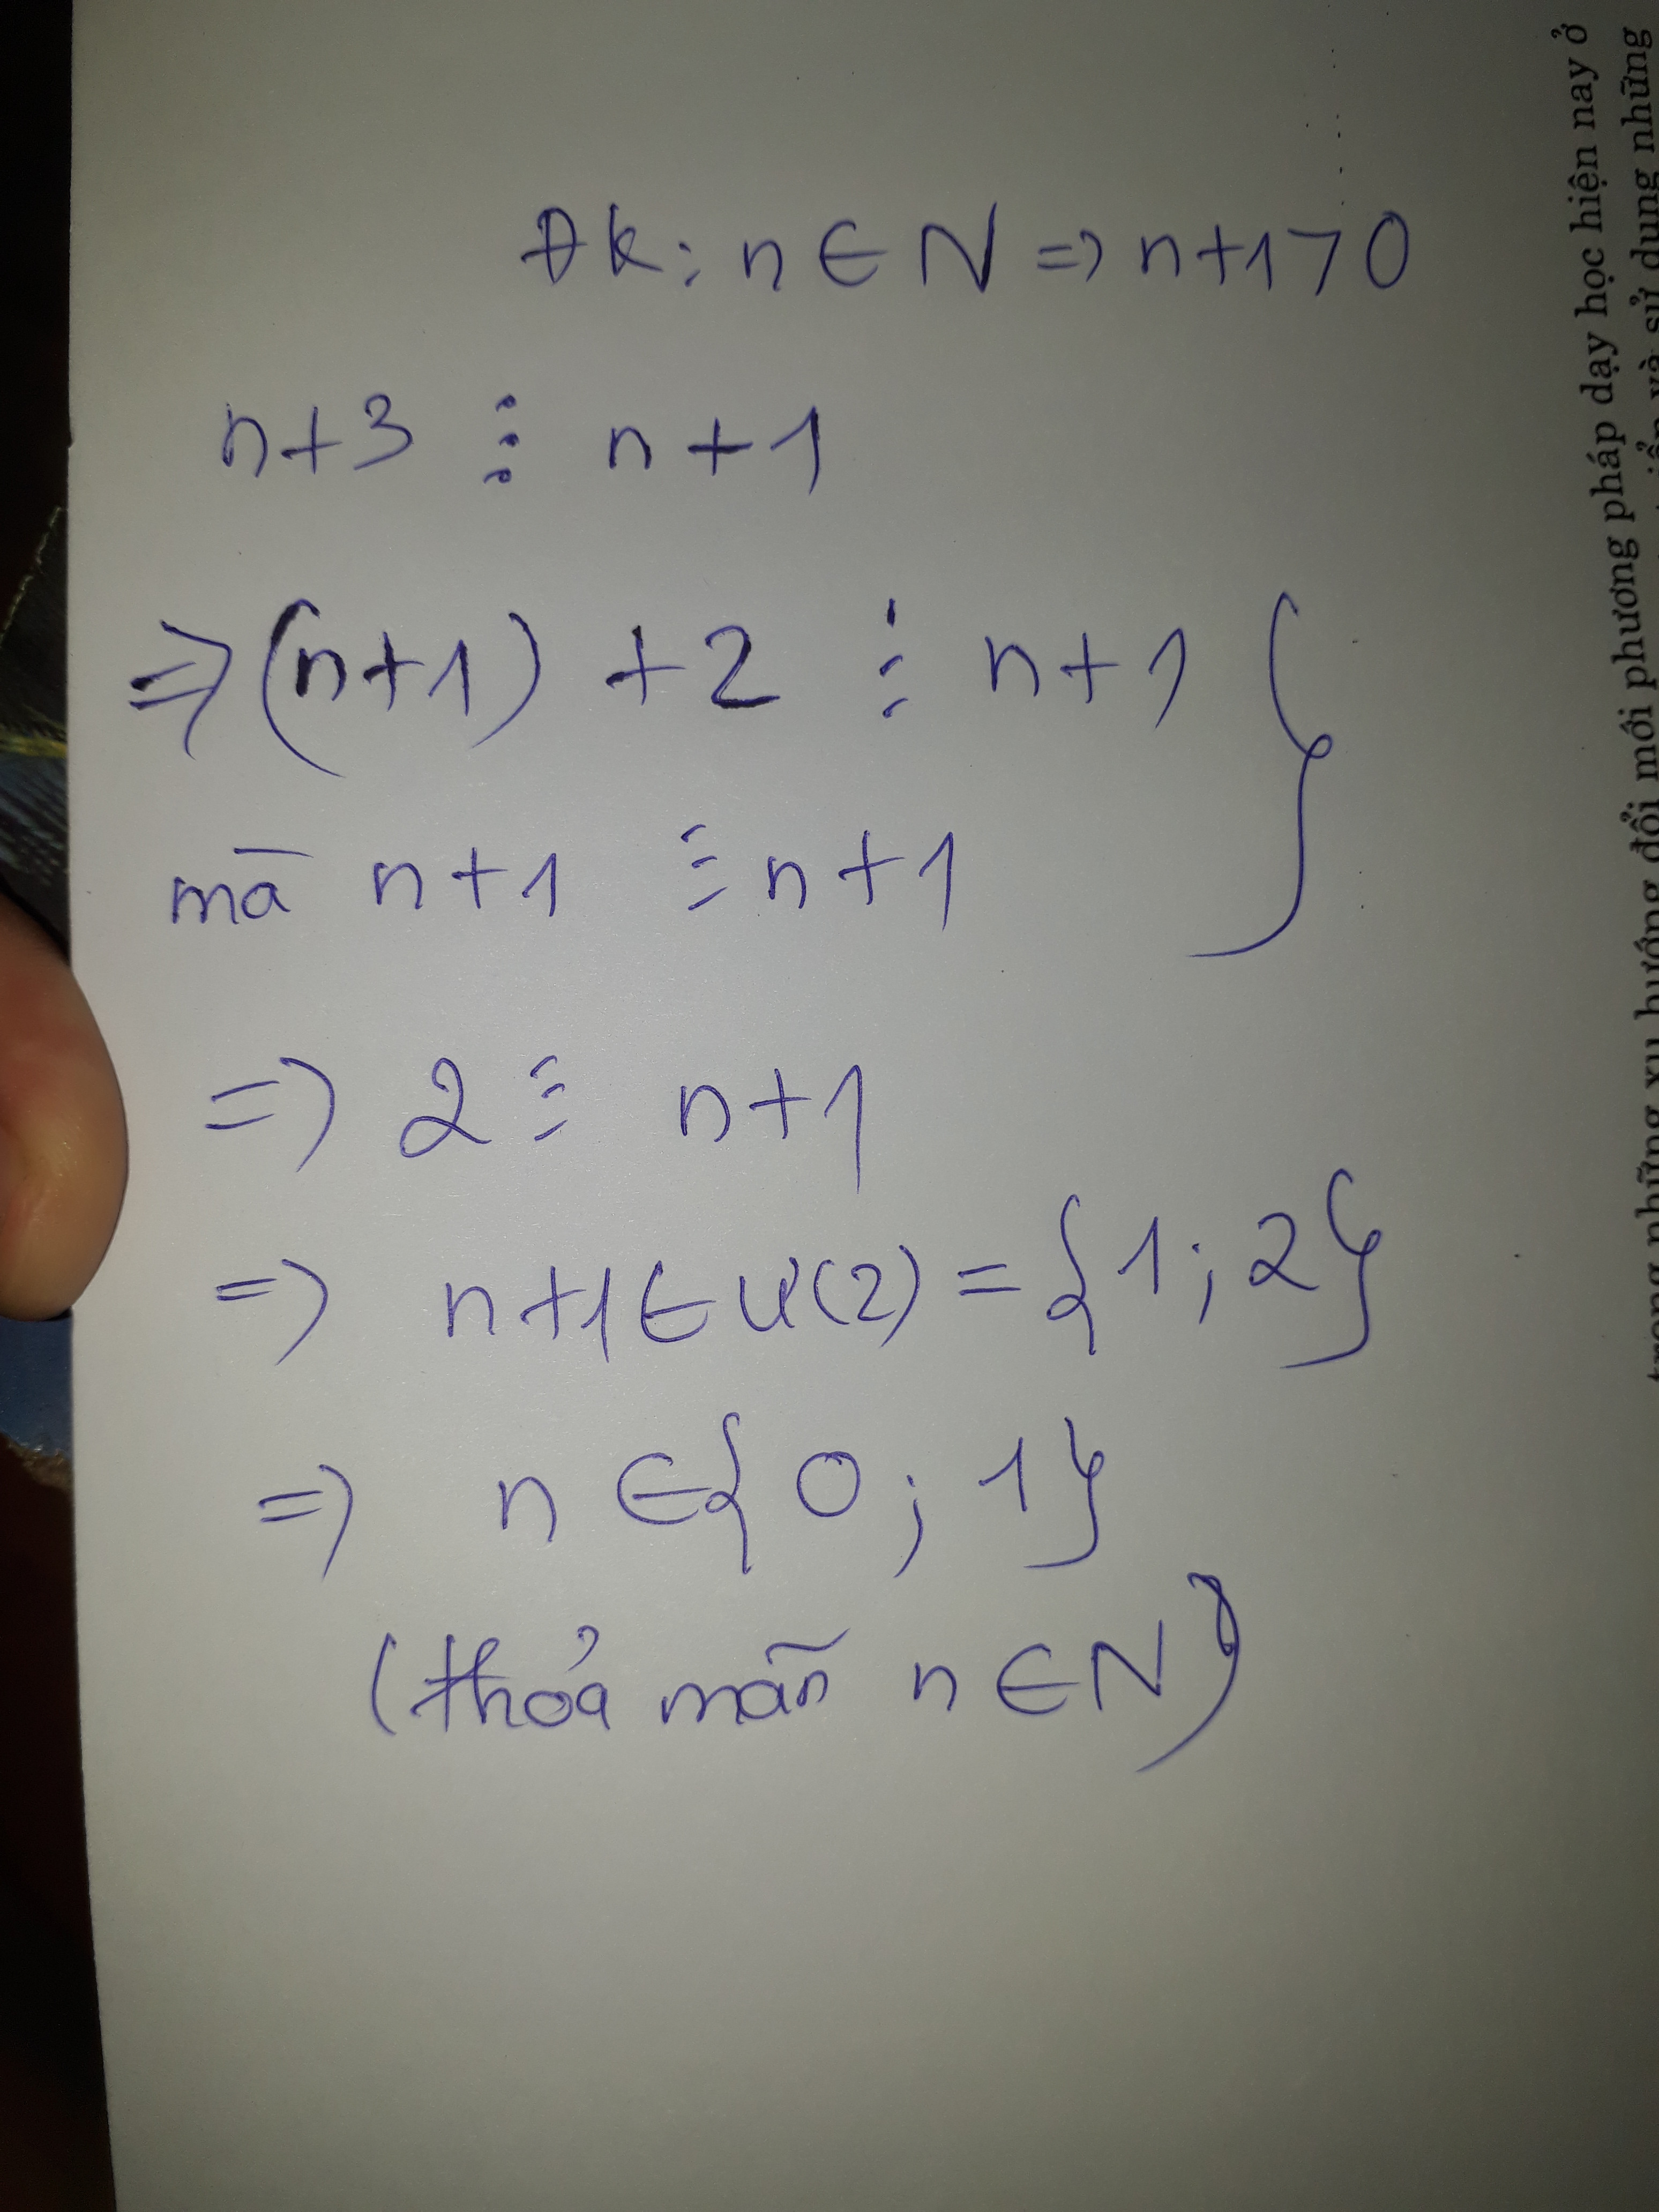 Đk: n ∈ N => n+1>0
n+3 ⋮ n+1
=> (n+1) + 2 ⋮ n+1 }
mà n+1 ⋮ n+1
=> 2 ⋮ n+1
=> n+1 ∈ Ư(2) = {1; 2}
=> n ∈ {0; 1}
(thỏa mãn n ∈ N)
trong những xu hướng đổi mới phương pháp dạy học hiện nay ở
và sử dụng những